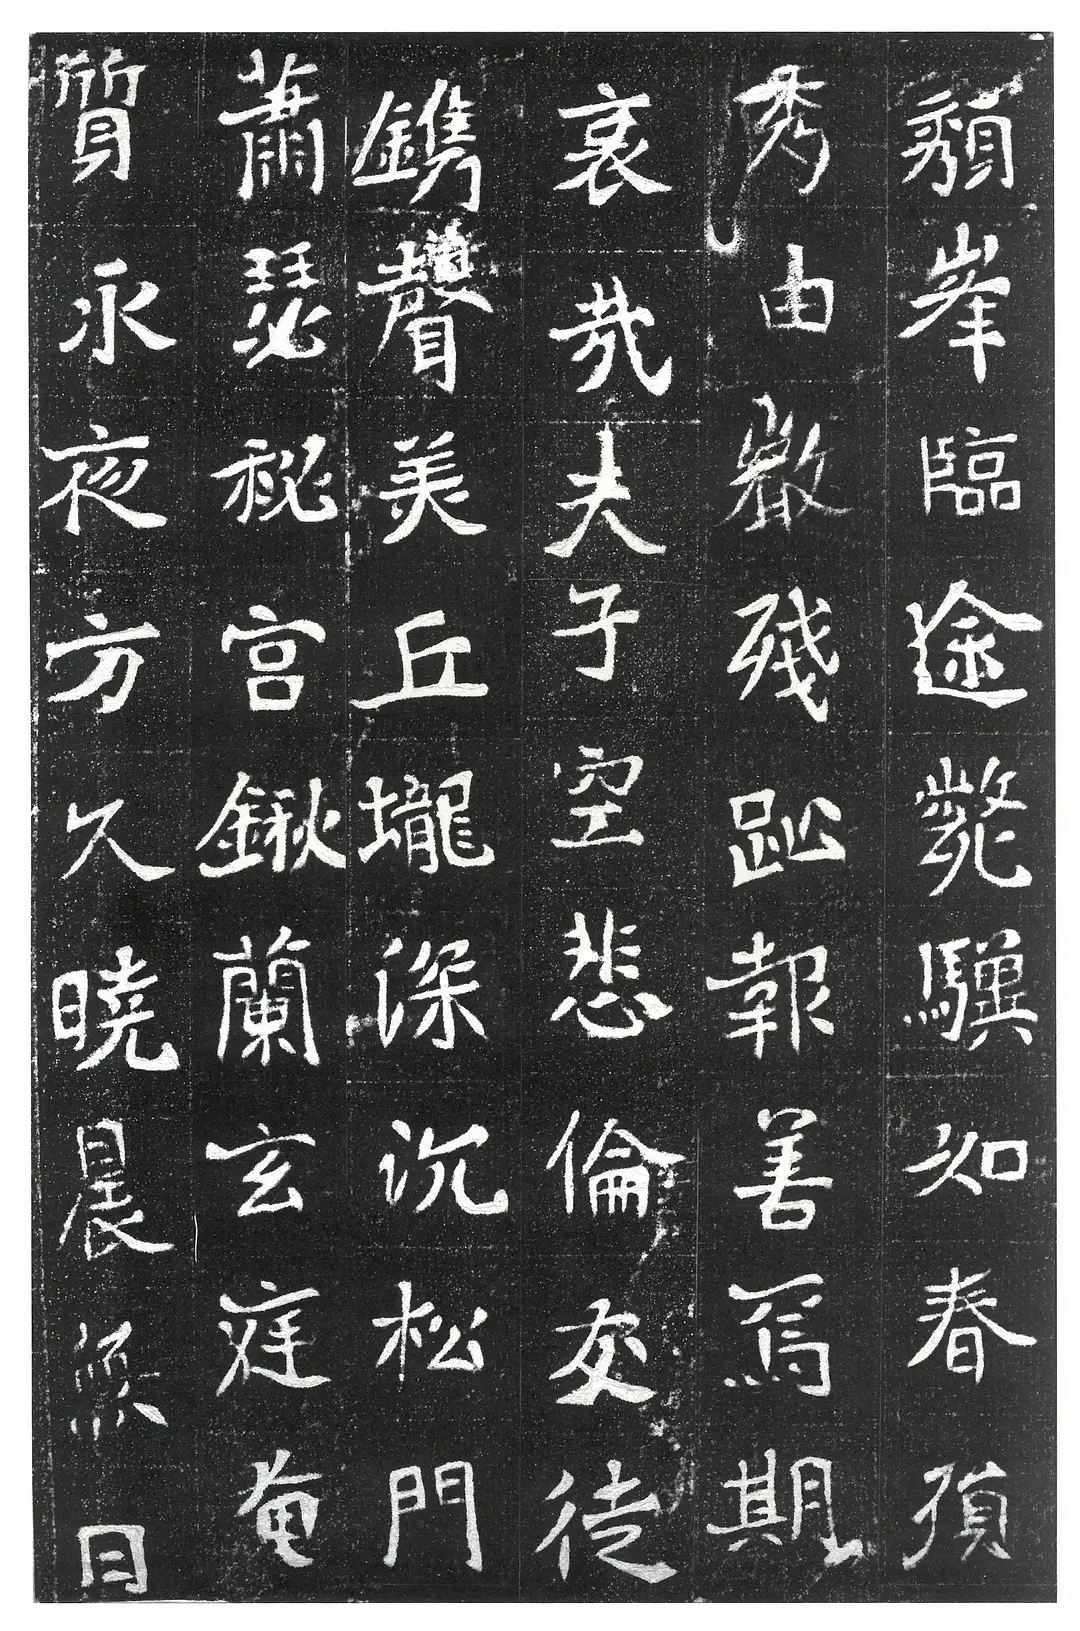 頽峯臨途斃驥如春殞
秀由散殘趾報善焉期
哀哉夫子空悲倫友徒
鐫聲美丘壠深沉松門
蕭瑟秘宮鍬蘭玄庭奄
質永夜方久曉晨無日